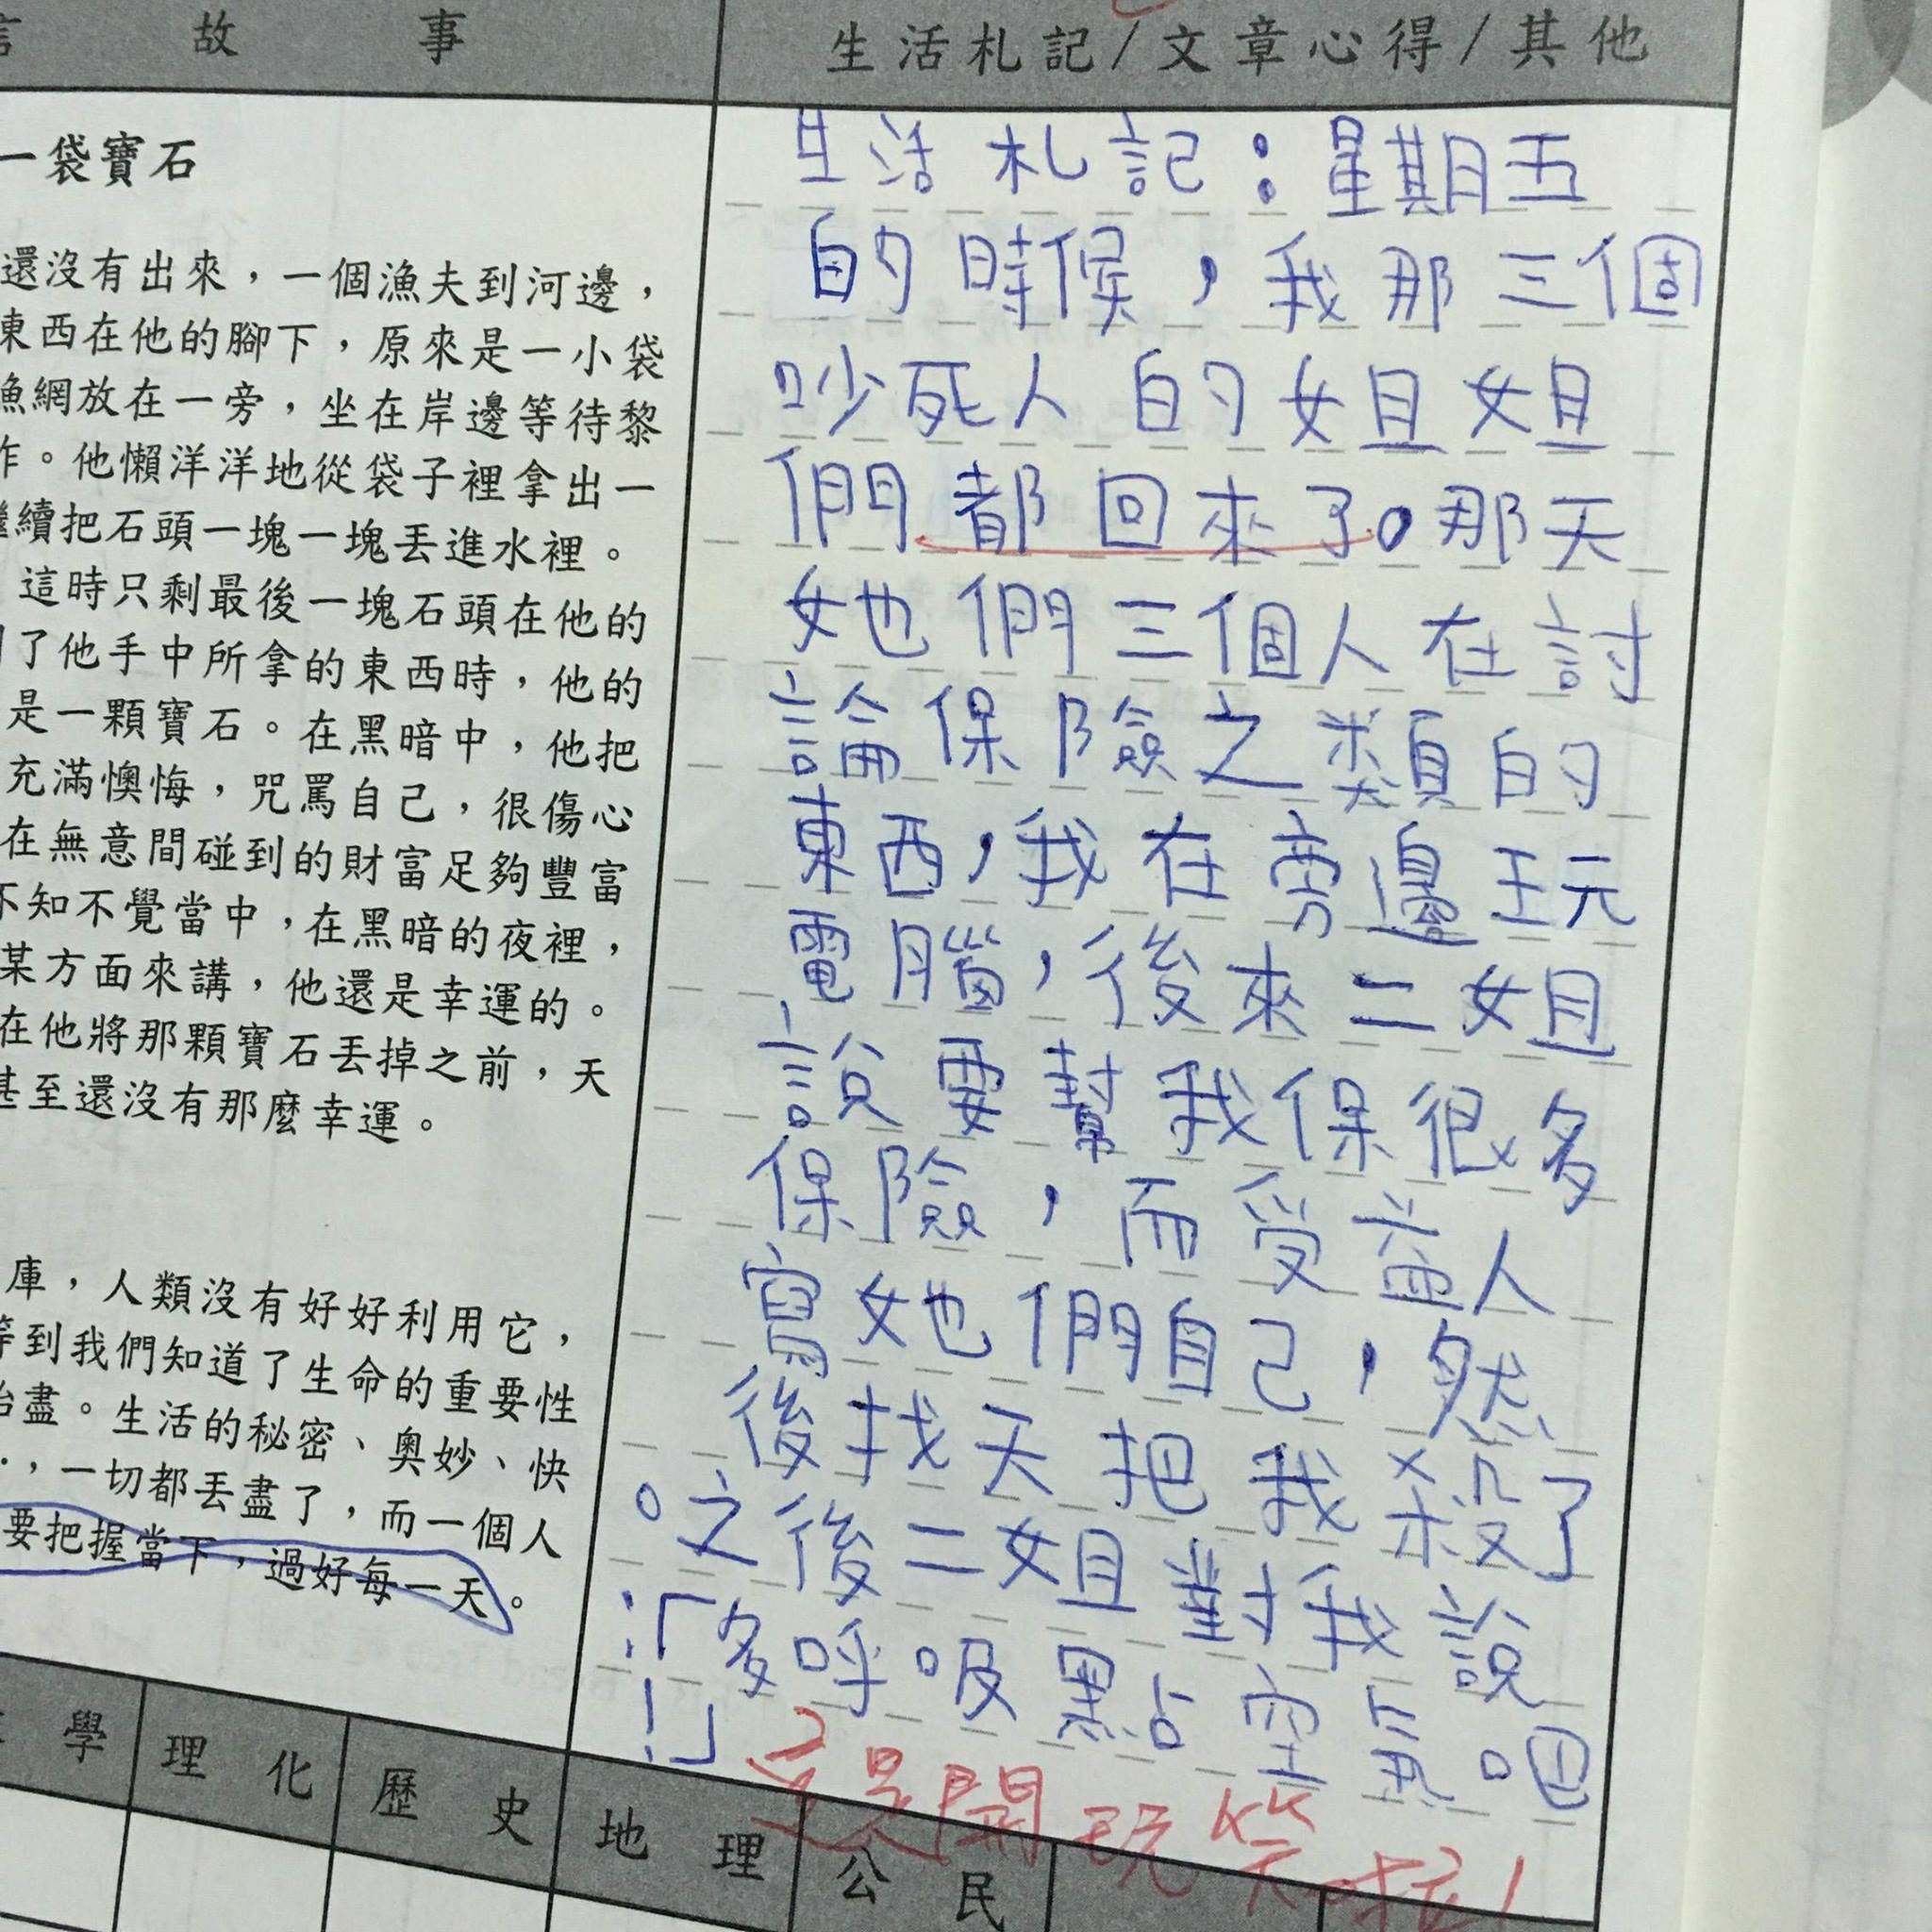 故事
生活札記/文章心得/其他
一袋寶石
還沒有出來，一個漁夫到河邊，
東西在他的腳下，原來是一小袋
漁網放在一旁，坐在岸邊等待黎
作。他懶洋洋地從袋子裡拿出一
繼續把石頭一塊一塊丟進水裡。
這時只剩最後一塊石頭在他的
了他手中所拿的東西時，他的
是一顆寶石。在黑暗中，他把
充滿懊悔，咒罵自己，很傷心
在無意間碰到的財富足夠豐富
不知不覺當中，在黑暗的夜裡，
某方面來講，他還是幸運的。
在他將那顆寶石丟掉之前，天
甚至還沒有那麼幸運。
庫，人類沒有好好利用它，
等到我們知道了生命的重要性
殆盡。生活的秘密、奧妙、快
，一切都丟盡了，而一個人
要把握當下，過好每一天。
生活札記：星期五
的時候，我那三個
吵死人的姐姐
們都回來了。那天
她們三個人在討
論保險之類的
東西，我在旁邊玩
電腦，後來二姐
說要幫我保很多
保險，而受益人
寫她們自己，然
後找天把我殺了
。之後二姐對我說
：「多呼吸點空氣吧
！」
這是開玩笑啦！
學
理化
歷史
地理
公民